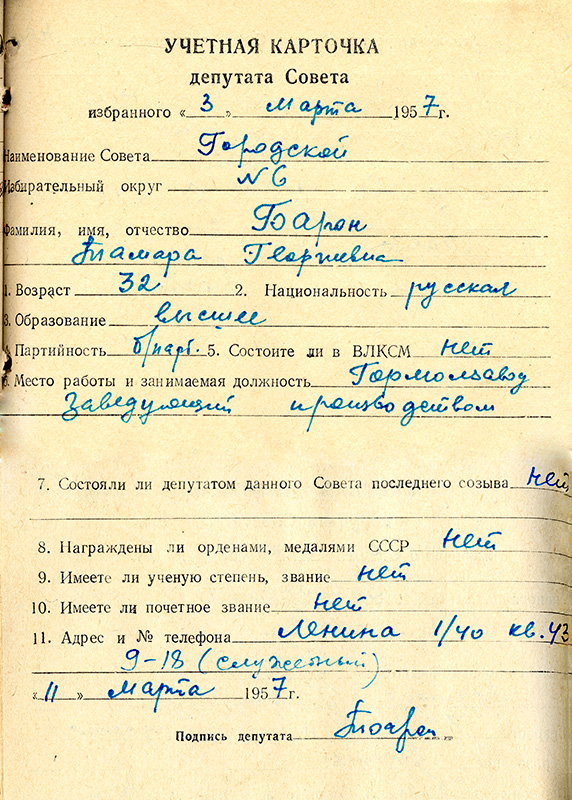 УЧЕТНАЯ КАРТОЧКА
депутата Совета
избранного « 3 » Марта 1957 г.
Наименование Совета Городской
Избирательный округ №6
Фамилия, имя, отчество Барон
Тамара Георгиевна
1. Возраст 32 2. Национальность русская
3. Образование высшее
4. Партийность б/парт. 5. Состоите ли в ВЛКСМ нет
6. Место работы и занимаемая должность Гормолзавод
Заведующий производством
7. Состояли ли депутатом данного Совета последнего созыва нет
8. Награждены ли орденами, медалями СССР нет
9. Имеете ли ученую степень, звание нет
10. Имеете ли почетное звание нет
11. Адрес и № телефона Ленина 1/40 кв. 43
9-18 (служебный)
« 11 » марта 1957 г.
Подпись депутата